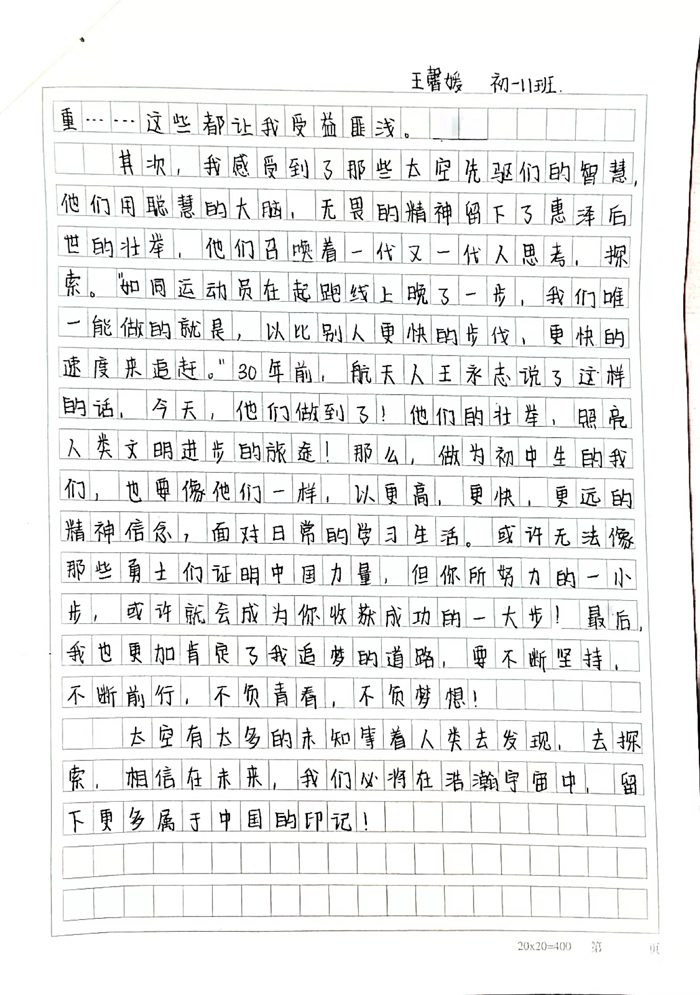 王馨媛 初一11班.
重……这些都让我受益匪浅。
其次，我感受到了那些太空先驱们的智慧，
他们用聪慧的大脑，无畏的精神留下了惠泽后
世的壮举，他们召唤着一代又一代人思考，探
索。"如同运动员在起跑线上晚了一步，我们唯
一能做的就是，以比别人更快的步伐，更快的
速度来追赶。"30年前，航天人王永志说了这样
的话，今天，他们做到了！他们的壮举，照亮
人类文明进步的旅途！那么，做为初中生的我
们，也要像他们一样，以更高，更快，更远的
精神信念，面对日常的学习生活。或许无法像
那些勇士们证明中国力量，但你所努力的一小
步，或许就会成为你收获成功的一大步！最后，
我也更加肯定了我追梦的道路，要不断坚持，
不断前行，不负青看，不负梦想！
太空有太多的未知等着人类去发现，去探
索，相信在未来，我们必将在浩瀚宇宙中，留
下更多属于中国的印记！
20x20=400 第 页